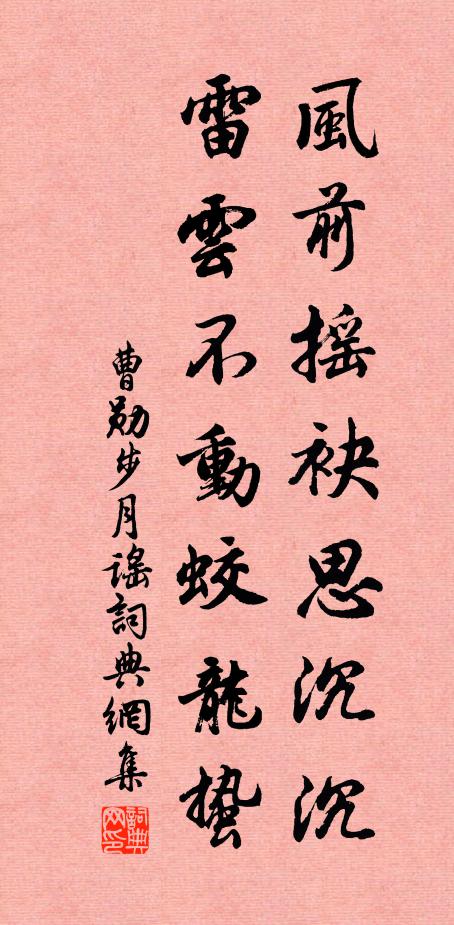 風前揺袂思沉沉
雷雲不動蛟龍蟄
曹勛步月謡詞典網集
詞典网印